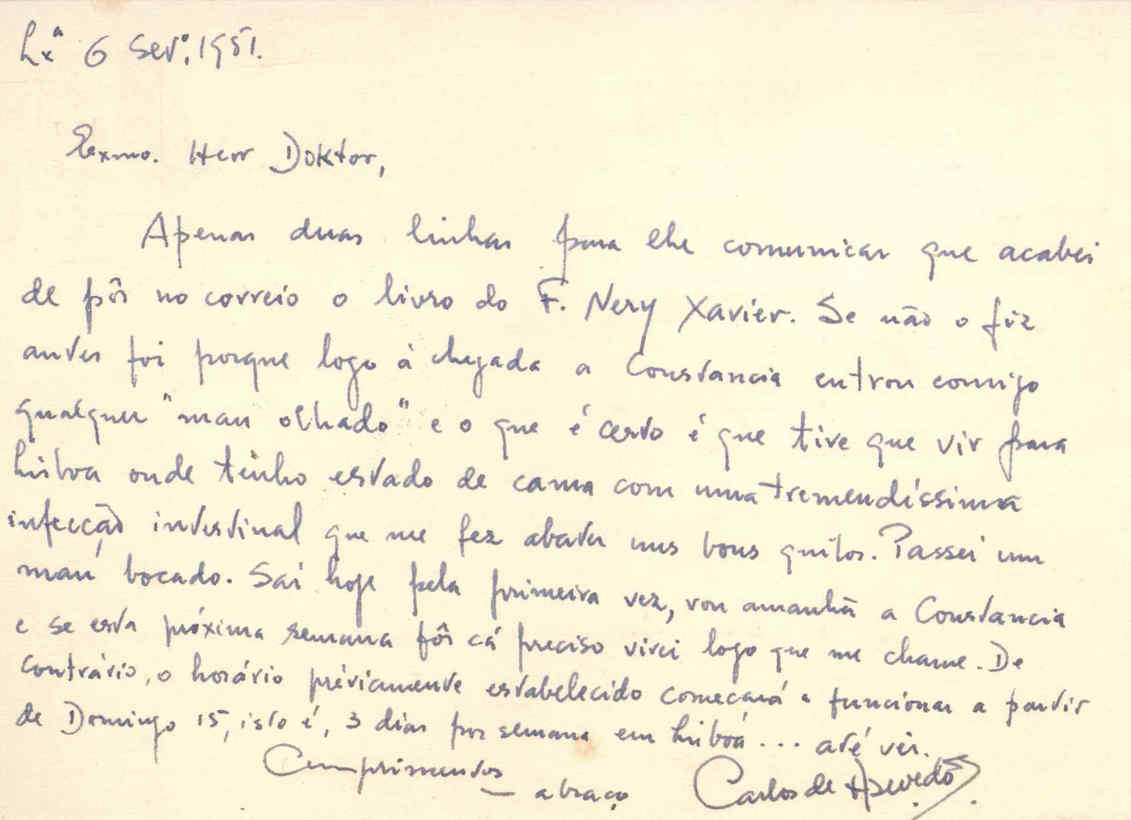 Lxª 6 Setº. 1951.
Exmo. Herr Doktor,
Apenas duas linhas para lhe comunicar que acabei
de pôr no correio o livro do F. Nery Xavier. Se não o fiz
antes foi porque logo à chegada a Constancia entrou comigo
qualquer "mau olhado" e o que é certo é que tive que vir para
Lisboa onde tenho estado de cama com uma tremendíssima
infecção intestinal que me fez abater uns bons quilos. Passei um
mau bocado. Saí hoje pela primeira vez, vou amanhã a Constancia
e se esta próxima semana fôr cá preciso virei logo que me chame. De
contrário, o horário préviamente estabelecido começará a funcionar a partir
de Domingo 15, isto é, 3 dias por semana em Lisboa... até ver.
Cumprimentos
— abraço Carlos de Azevedo